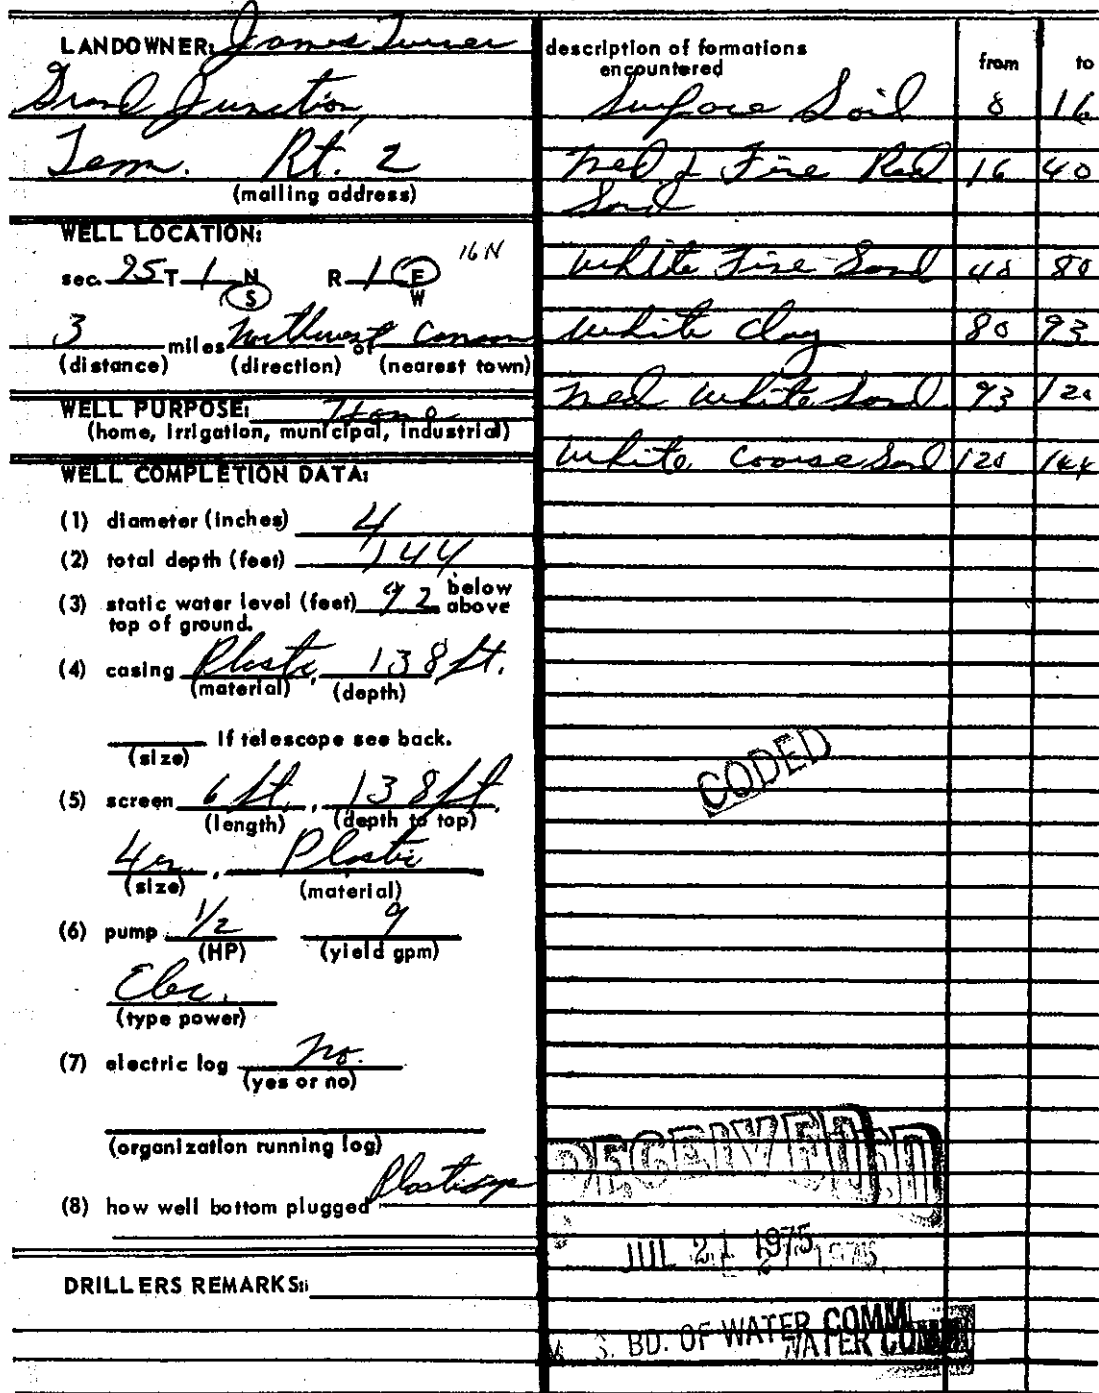 LANDOWNER: James Turner
Grand Junction,
Tenn. Rt. 2
(mailing address)
WELL LOCATION:
sec. 25 T 1 N S R 1 E W 16N
3 miles Northwest of Canaan
(distance) (direction) (nearest town)
WELL PURPOSE: Home
(home, irrigation, municipal, industrial)
WELL COMPLETION DATA:
(1) diameter (inches) 4
(2) total depth (feet) 144
(3) static water level (feet) 92 below above
top of ground.
(4) casing Plastic, 138 ft.
(material) (depth)
If telescope see back.
(size)
(5) screen 6 ft., 138 ft.
(length) (depth to top)
4 in., Plastic
(size) (material)
(6) pump 1/2 9
(HP) (yield gpm)
Elec.
(type power)
(7) electric log no.
(yes or no)
(organization running log)
(8) how well bottom plugged
DRILLERS REMARKS:
description of formations encountered from to
Surface Soil 8 16
Med & Fine Red Sand 16 40
White Fine Sand 40 80
White Clay 80 93
Med White Sand 93 120
White Coarse Sand 120 144
CODED
RECEIVED
JUL 21 1975
BD. OF WATER COMM
WATER COMM